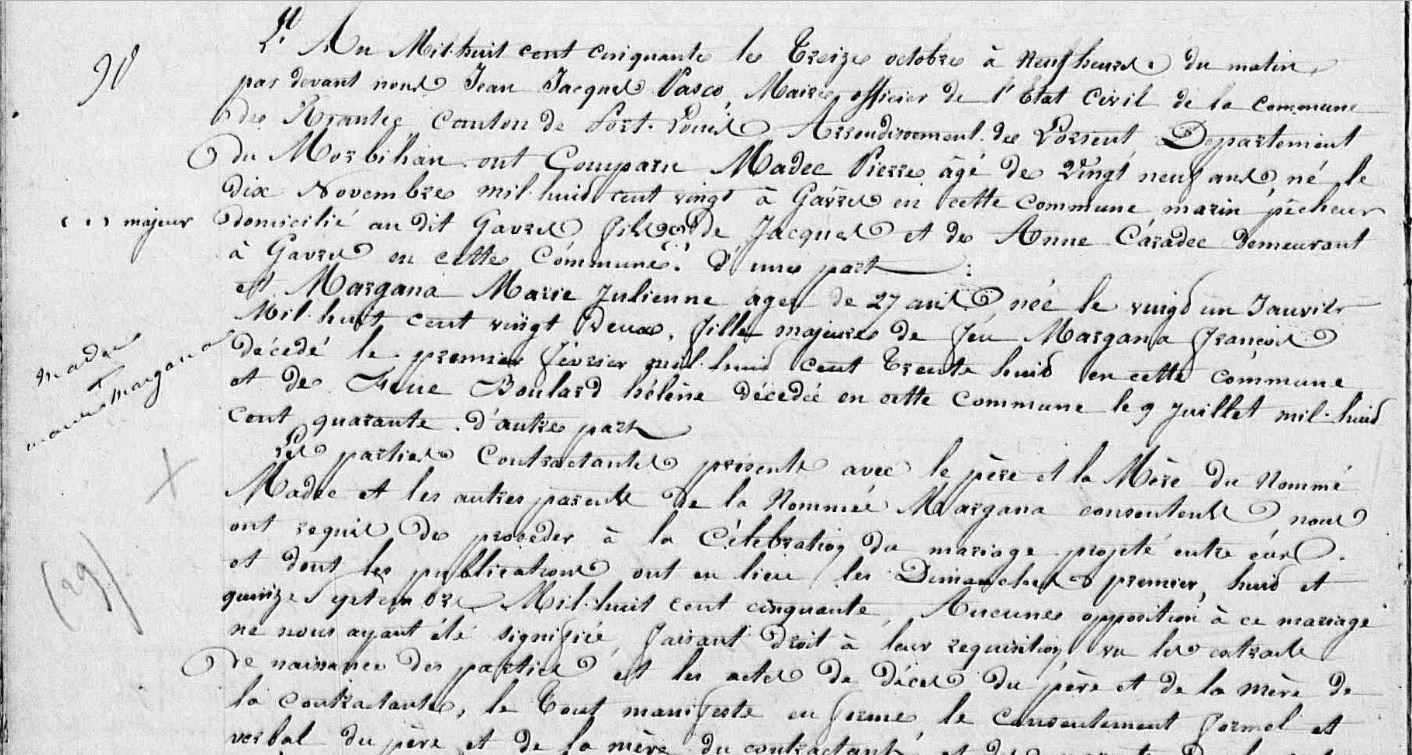 98
L'An Mil huit cent cinquante le Treize octobre à Neuf heures du matin
par devant nous Jean Jacques Pasco, Maire officier de l'Etat Civil de la commune
de Riantec Canton de Port-Louis Arrondissement de Lorient, Departement
du Morbihan ont Comparu Madec Pierre âgé de Vingt neuf ans, né le
dix Novembre mil huit cent vingt à Gavres en cette commune, marin pêcheur
domicilié au dit Gavres fils de Jacques et de Anne Caradec demeurant
majeur
à Gavres en cette Commune. d'une part
et Margana Marie Julienne âgée de 27 ans, née le vingt un Janvier
Mil huit cent vingt Deux, fille majeure de feu Margana François
décédé le premier février mil huit cent Trente huit en cette commune
et de Feue Boulard hélène décédée en cette Commune le 9 Juillet mil huit
cent quarante d'autre part
Madec
et
Margana
Les parties Contractantes présents avec le père et la Mère du Nommé
Madec et les autres parents de la Nommée Margana consentents, nous
ont requis de proceder à la Célébration du mariage projeté entre eux.
et dont les publications ont eu lieu les Dimanches premier, huit et
quinze Septembre Mil huit cent cinquante, Aucune opposition à ce mariage
ne nous ayant été signifiée, faisant droit à leur requisition, vu les extraits
de naissance des parties et les actes de décès du père et de la mère de
la contractante, le Tout manifeste en forme le Consentement formel et
verbal du père et de la mère du contractant et des
(29)